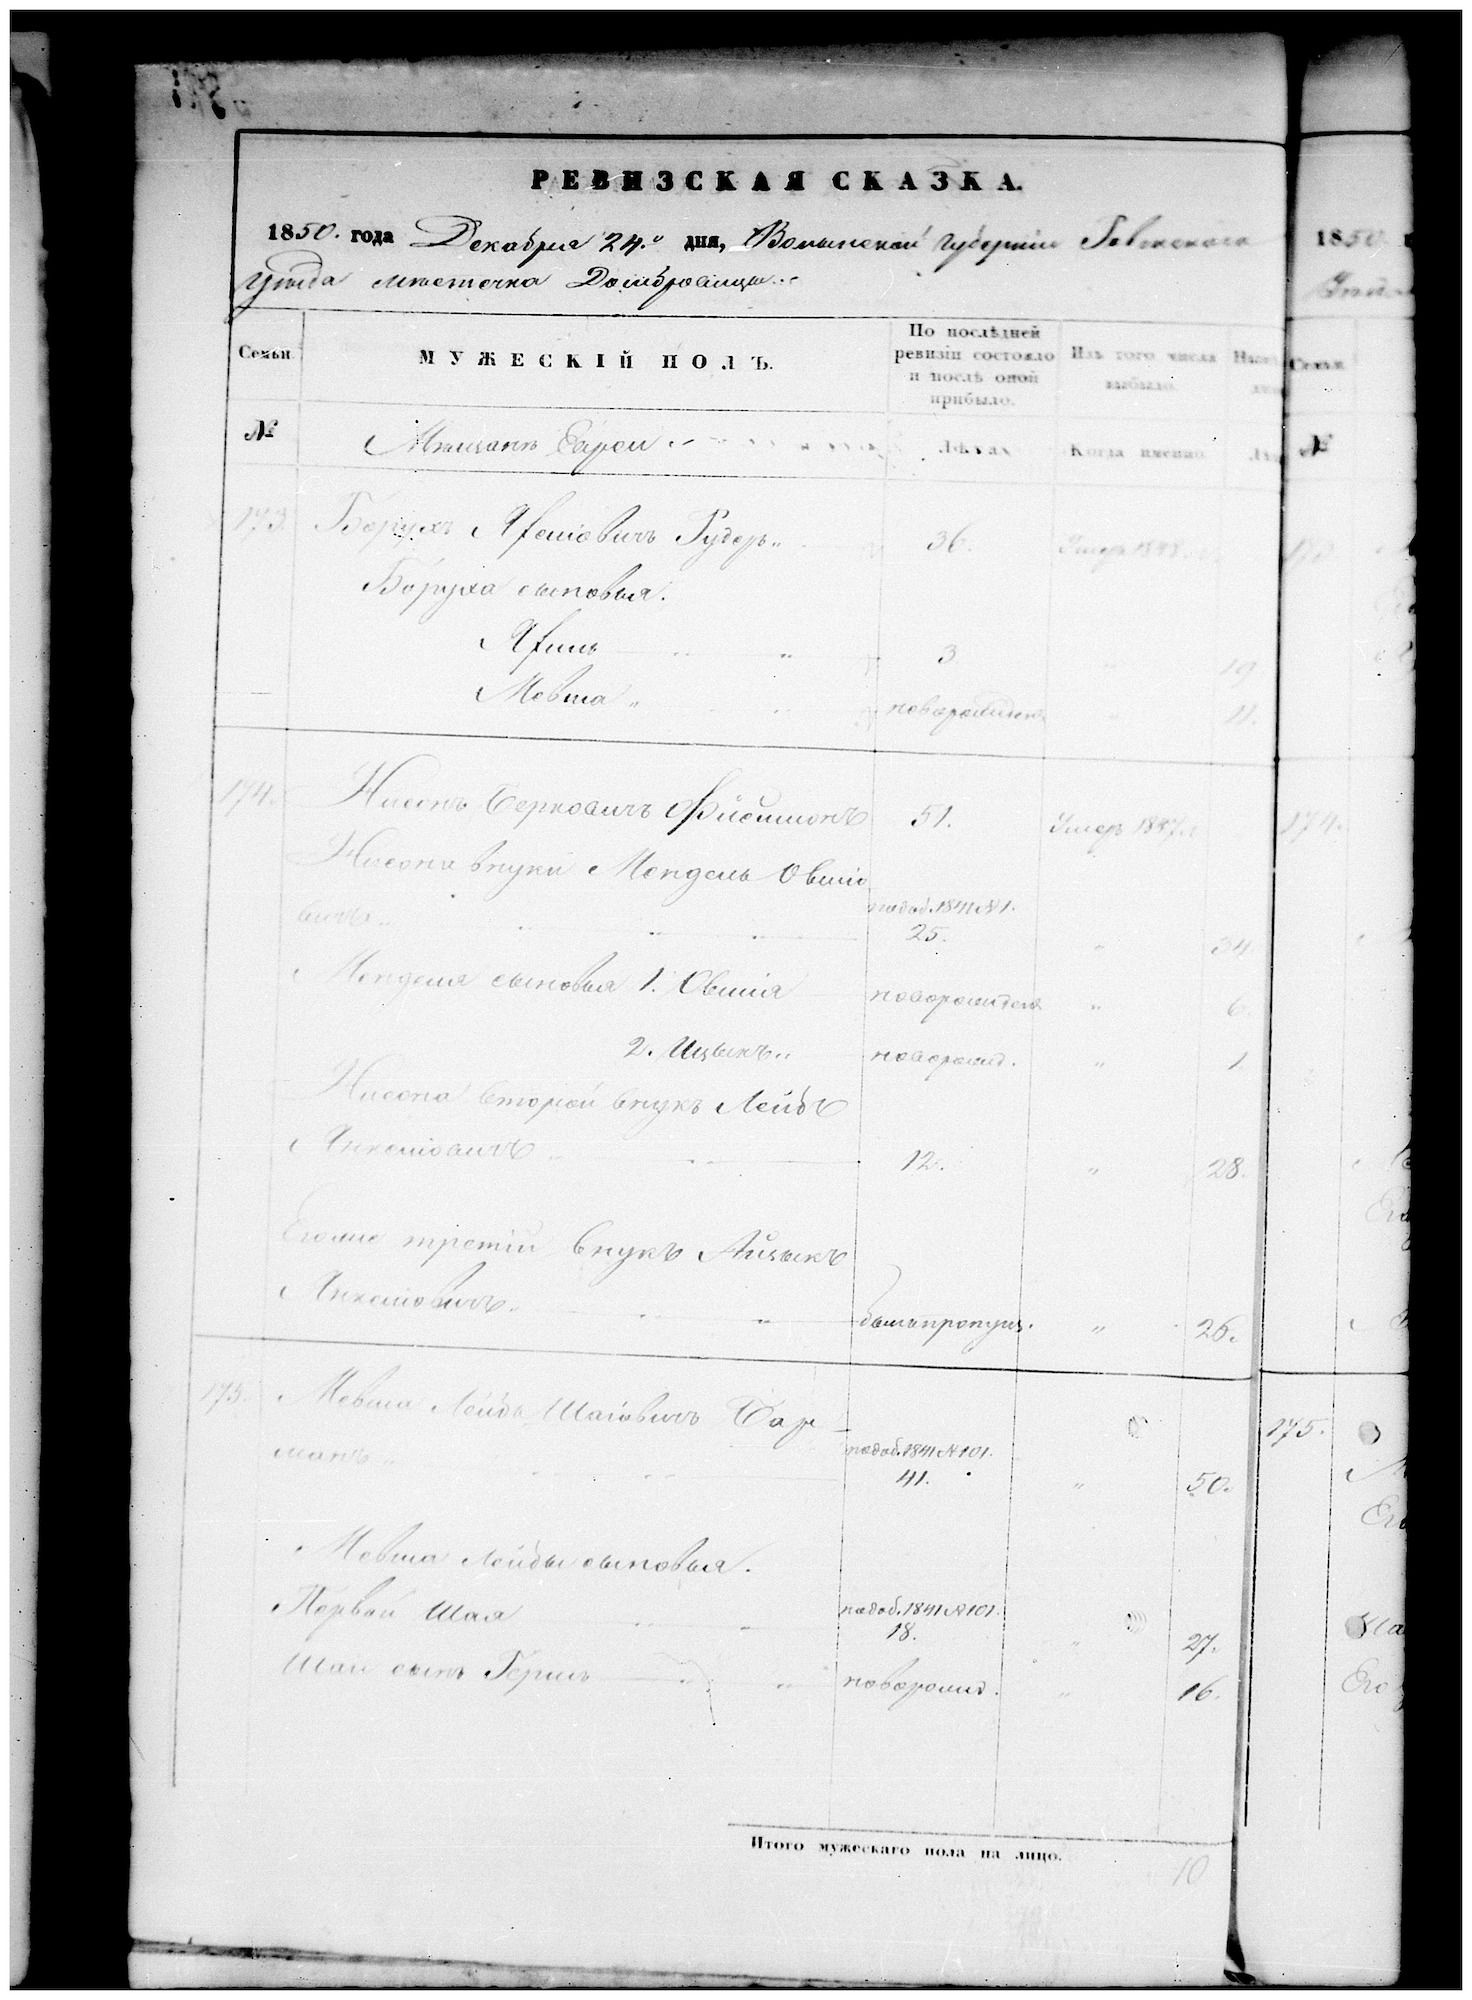 РЕВИЗСКАЯ СКАЗКА.
1850. года Декабря 24.го дня, Волынской Губерніи Ровенского
Уезда местечка Домбровицы
Семьи.
МУЖЕСКІЙ ПОЛЪ.
По послѣдней ревизіи состояло и послѣ оной прибыло.
Изъ того числа выбыло.
№
Мещане Евреи
Лѣта.
Когда именно.
173. Борухъ Рудеръ 36. Умеръ 1848
Боруха сыновья.
3 10
Мовша новорожденъ 11.
174. Нисонъ Берковичъ Фишманъ 51. Умеръ 1847
Нисона внуки Мендель Овшіо
вичъ 1841 №1. 25. 34
Менделя сыновья 1. Овшія новорожденъ 6.
2. Ицыкъ новорожд. 1
Нисона второй внукъ Лейбъ
Янкеліовичъ 12. 28.
Его же третій внукъ Айзыкъ
Янкеліовичъ былъ пропущ. 26.
175. Мовша Лейба Шаіовичъ
манъ 1841 №101. 41. 50.
Мовша Лейбы сыновья.
Первой Шая 1841 №101. 18. 27.
Шаи сынъ Гершъ новорожд. 16.
Итого мужескаго пола на лицо. 10
1850
174.
175.